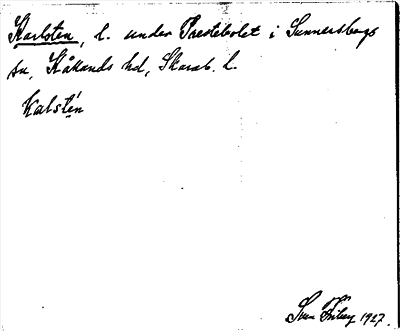 Karlsten, l. under Prestebolet i Sunnersbergs
sn, Kållands hd, Skarab. l.
Kalstén
Sven 1927.